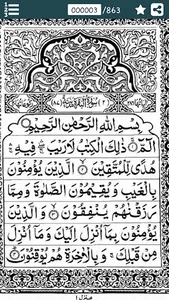 000003 /863
بِسْمِ اللّٰهِ الرَّحْمٰنِ الرَّحِيْمِ
الٓمّٓ ۚ ذٰلِكَ الْكِتٰبُ لَا رَيْبَ ۛ فِيْهِ ۛ
هُدًى لِّلْمُتَّقِيْنَ ۙ الَّذِيْنَ يُؤْمِنُوْنَ
بِالْغَيْبِ وَيُقِيْمُوْنَ الصَّلٰوةَ وَمِمَّا
رَزَقْنٰهُمْ يُنْفِقُوْنَ ۙ وَالَّذِيْنَ
يُؤْمِنُوْنَ بِمَآ اُنْزِلَ اِلَيْكَ وَمَآ اُنْزِلَ
مِنْ قَبْلِكَ ۚ وَبِالْاٰخِرَةِ هُمْ يُوْقِنُوْنَ
منزل ١